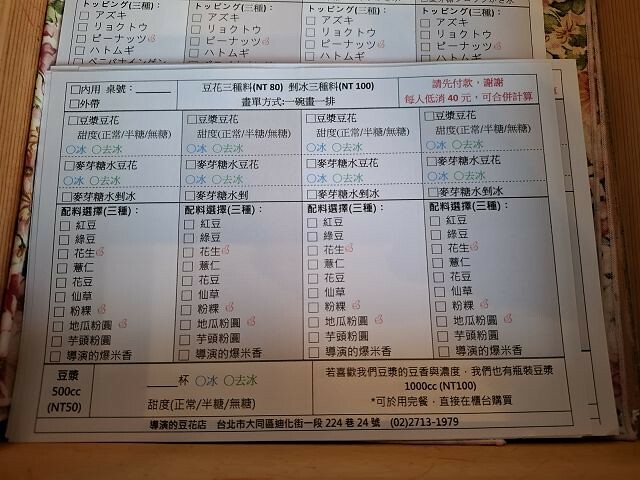 トッピング(三種)： トッピング(三種)： トッピング(三種)： トッピング(三種)：
アズキ アズキ アズキ アズキ
リョクトウ リョクトウ リョクトウ リョクトウ
ピーナッツ ピーナッツ ピーナッツ ピーナッツ
ハトムギ ハトムギ ハトムギ ハトムギ
□內用 桌號：_____ 豆花三種料(NT 80) 剉冰三種料(NT 100) 請先付款，謝謝
□外帶 畫單方式:一碗畫一排 每人低消 40 元，可合併計算
□豆漿豆花 □豆漿豆花 □豆漿豆花 □豆漿豆花
甜度(正常/半糖/無糖) 甜度(正常/半糖/無糖) 甜度(正常/半糖/無糖) 甜度(正常/半糖/無糖)
○冰 ○去冰 ○冰 ○去冰 ○冰 ○去冰 ○冰 ○去冰
□麥芽糖水豆花 □麥芽糖水豆花 □麥芽糖水豆花 □麥芽糖水豆花
○冰 ○去冰 ○冰 ○去冰 ○冰 ○去冰 ○冰 ○去冰
□麥芽糖水剉冰 □麥芽糖水剉 □麥芽糖水剉冰 □麥芽糖水剉冰
配料選擇(三種)： 配料選擇(三種)： 配料選擇(三種)： 配料選擇(三種)：
□ 紅豆 □ 紅豆 □ 紅豆 □ 紅豆
□ 綠豆 □ 綠豆 □ 綠豆 □ 綠豆
□ 花生 □ 花生 □ 花生 □ 花生
□ 薏仁 □ 薏仁 □ 薏仁 □ 薏仁
□ 花豆 □ 花豆 □ 花豆 □ 花豆
□ 仙草 □ 仙草 □ 仙草 □ 仙草
□ 粉粿 □ 粉粿 □ 粉粿 □ 粉粿
□ 地瓜粉圓 □ 地瓜粉圓 □ 地瓜粉圓 □ 地瓜粉圓
□ 芋頭粉圓 □ 芋頭粉圓 □ 芋頭粉圓 □ 芋頭粉圓
□ 導演的爆米香 □ 導演的爆米香 □ 導演的爆米香 □ 導演的爆米香
豆漿 _____杯 ○冰 ○去冰 若喜歡我們豆漿的豆香與濃度，我們也有瓶裝豆漿
500cc 1000cc (NT100)
(NT50) 甜度(正常/半糖/無糖) *可於用完餐，直接在櫃台購買
導演的豆花店 台北市大同區迪化街一段 224 巷 24 號 (02)2713-1979